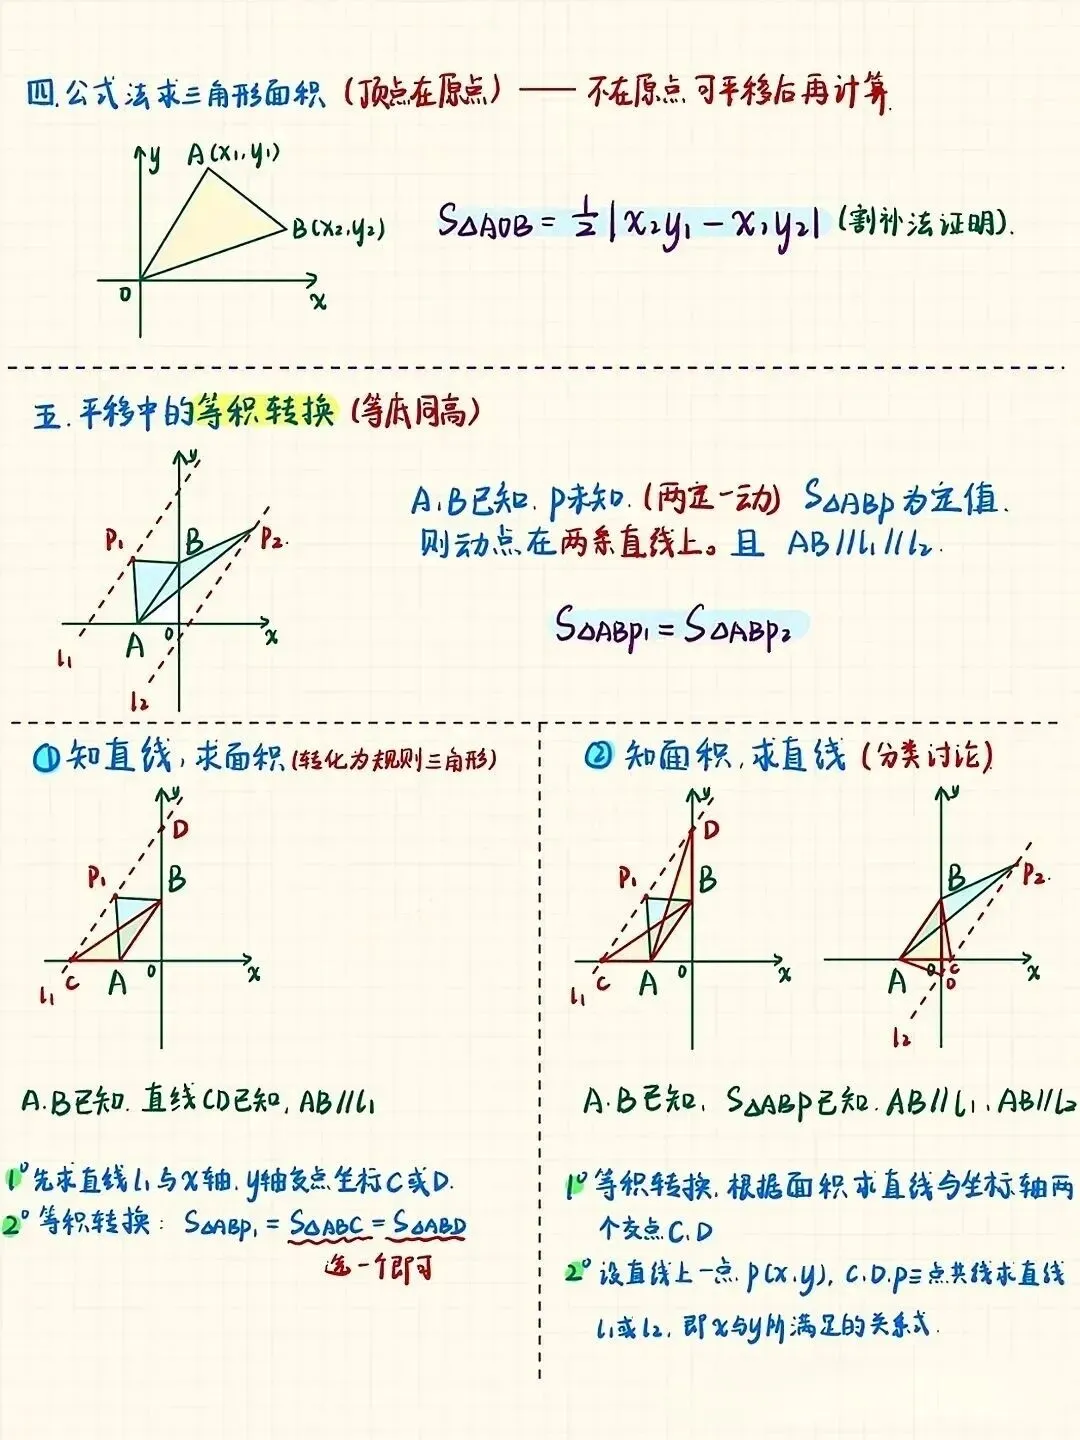 四.公式法求三角形面积(顶点在原点)——不在原点可平移后再计算.
y
A(x₁,y₁)
B(x₂,y₂)
O
x
S△AOB=½|x₂y₁-x₁y₂|(割补法证明).
五.平移中的等积转换(等底同高)
y
P₁
B
P₂.
A
O
x
l₁
l₂
A,B已知.P未知.(两定一动)S△ABP为定值.
则动点在两条直线上。且 AB∥l₁∥l₂.
S△ABP₁=S△ABP₂
①知直线,求面积(转化为规则三角形)
y
D
P₁
B
C
A
O
x
l₁
A.B已知.直线CD已知,AB∥l₁
1°先求直线l₁与x轴.y轴交点坐标C或D.
2°等积转换:S△ABP₁=S△ABC=S△ABD
选一个即可
②知面积,求直线(分类讨论)
y
D
P₁
B
C
A
O
x
l₁
y
B
P₂.
A
O
C
D
x
l₂
A.B已知,S△ABP已知.AB∥l₁,AB∥l₂
1°等积转换.根据面积求直线与坐标轴两
个交点C,D
2°设直线上一点.P(x,y),C.D.P三点共线求直线
l₁或l₂,即x与y所满足的关系式.